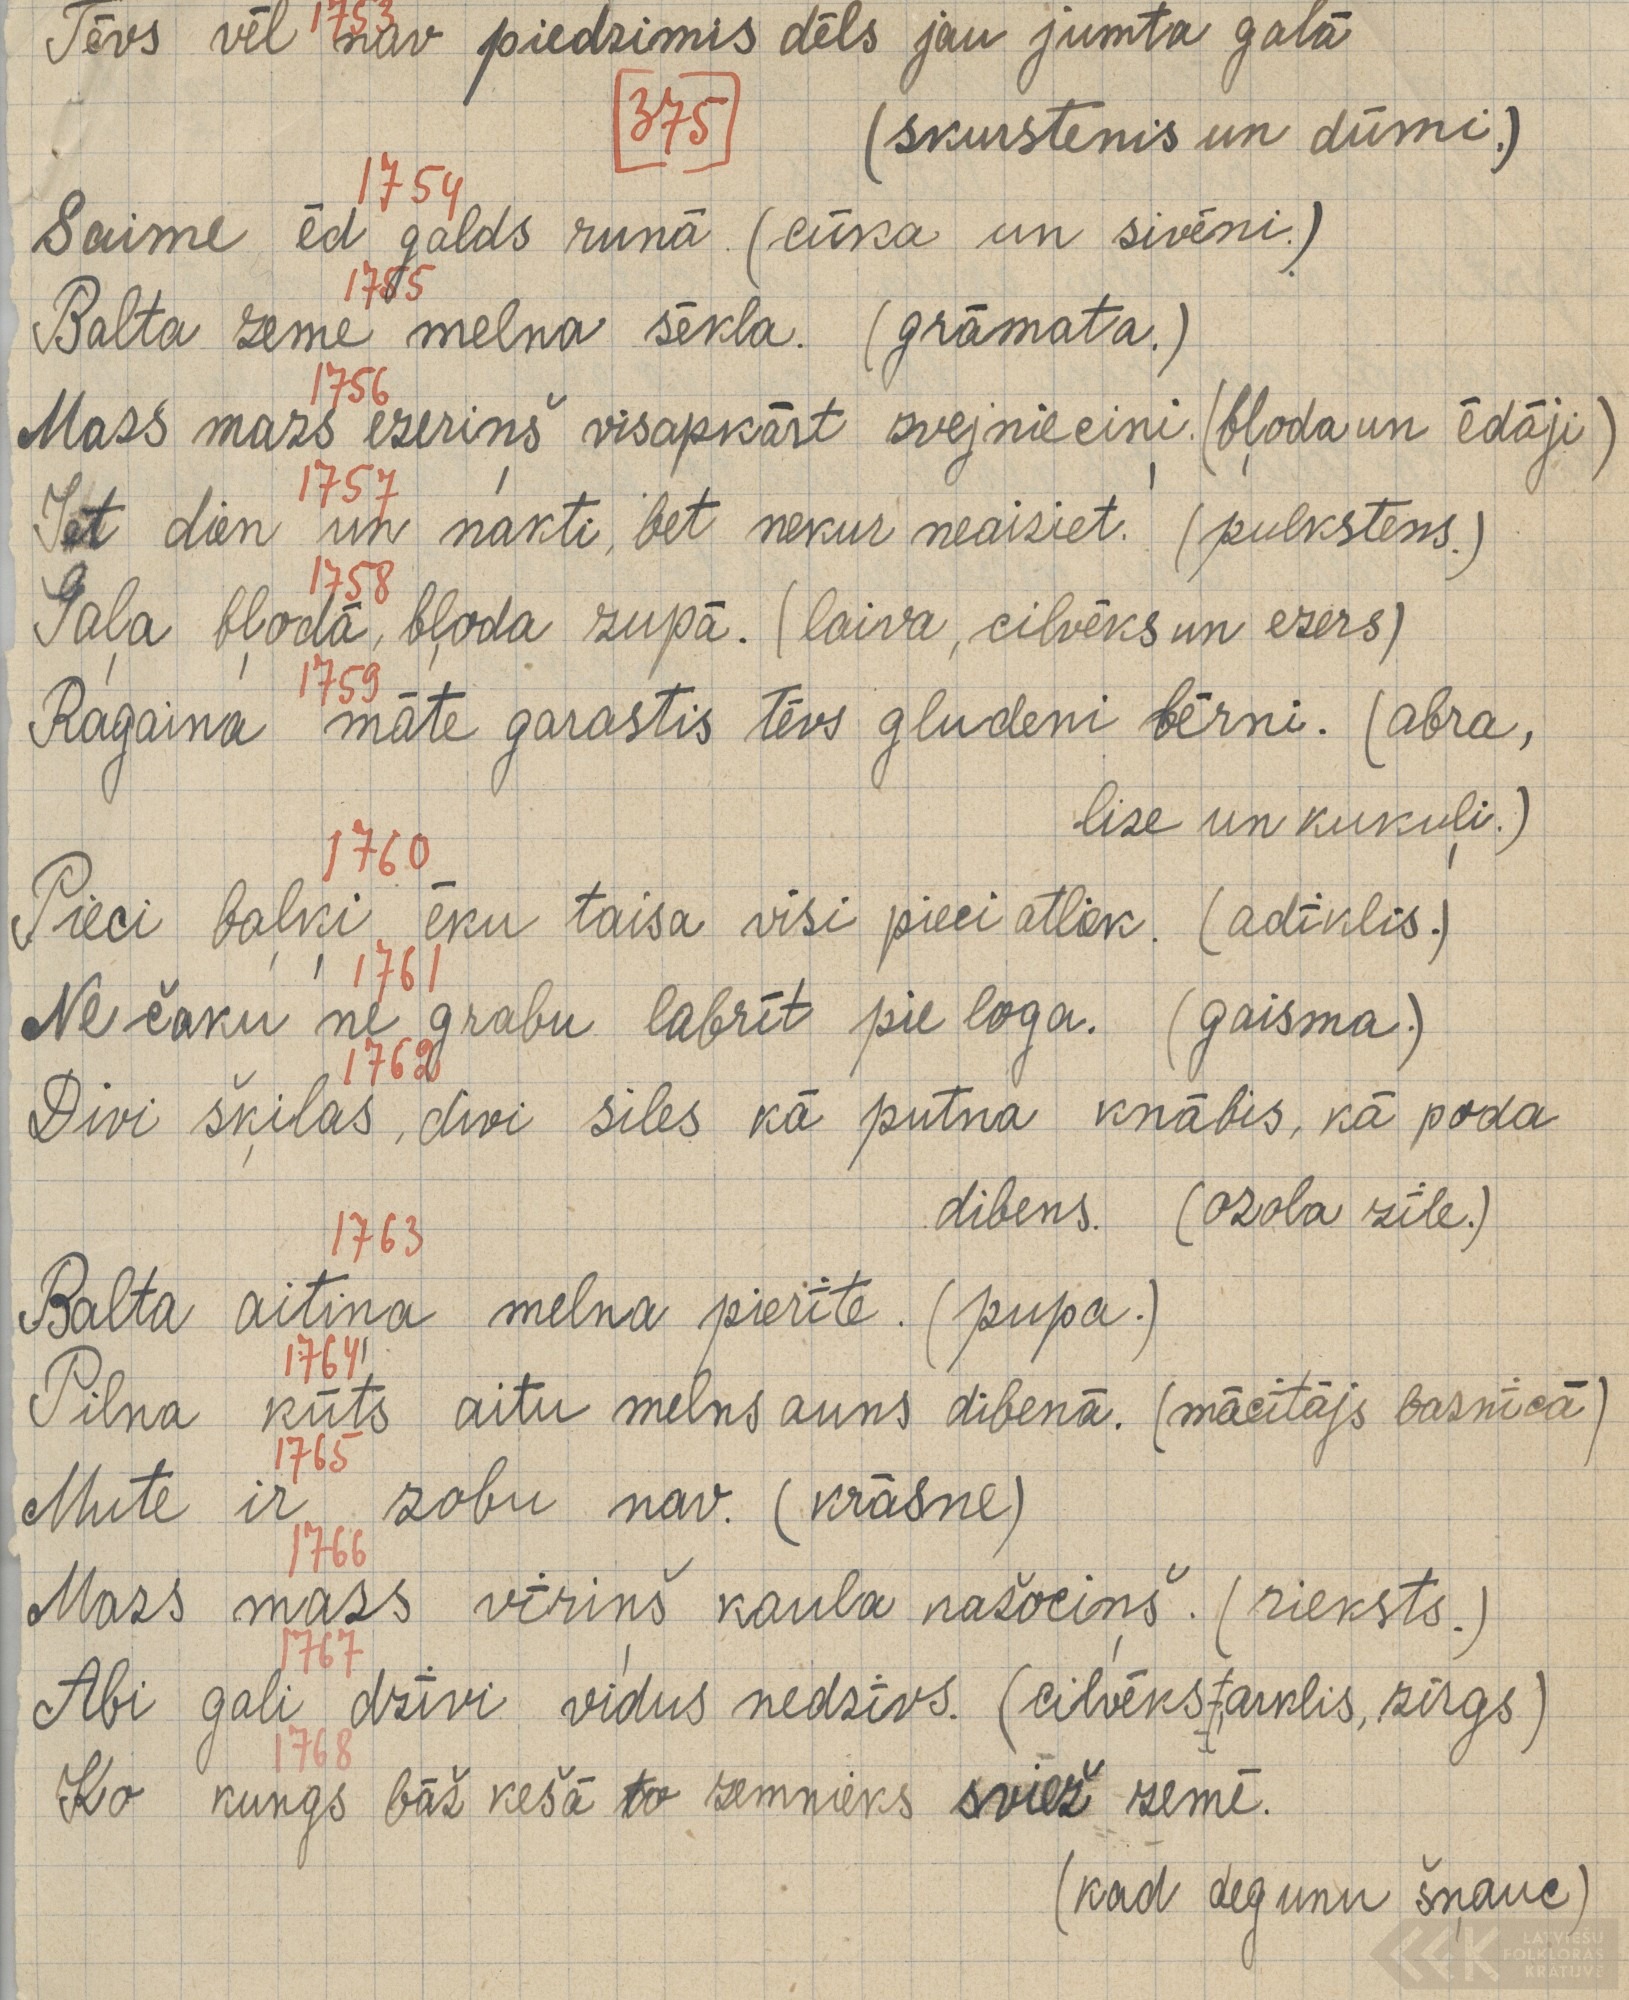 1753
Tēvs vēl nav piedzimis dēls jau jumta galā
[375] (skurstenis un dūmi.)
1754
Saime ēd galds runā. (cūka un sivēni.)
1755
Balta zeme melna sēkla. (grāmata.)
1756
Mazs mazs ezeriņš visapkārt zvejnieciņi. (bļoda un ēdāji)
1757
Iet dien un nakti, bet nekur neaiziet. (pulkstens.)
1758
Gaļa bļodā, bļoda zupā. (laiva, cilvēks un ezers)
1759
Ragaina māte garastis tēvs gludeni bērni. (abra,
lize un kukuļi.)
1760
Pieci baļķi ēku taisa visi pieci atliek. (adīklis.)
1761
Ne čaku ne grabu labrīt pie loga. (gaisma.)
1762
Divi šķilas, divi siles kā putna knābis, kā poda
dibens. (ozola zīle.)
1763
Balta aitiņa melna pierīte. (pupa.)
1764
Pilna kūts aitu melns auns dibenā. (mācītājs baznīcā)
1765
Mute ir zobu nav. (krāsne)
1766
Mazs mazs vīriņš kaula našociņš. (rieksts.)
1767
Abi gali dzīvi vidus nedzīvs. (cilvēks, arklis, zirgs)
1768
Ko kungs bāž kešā to zemnieks sviež zemē.
(kad degunu šņauc)
LATVIEŠU
FOLKLORAS
KRĀTUVE